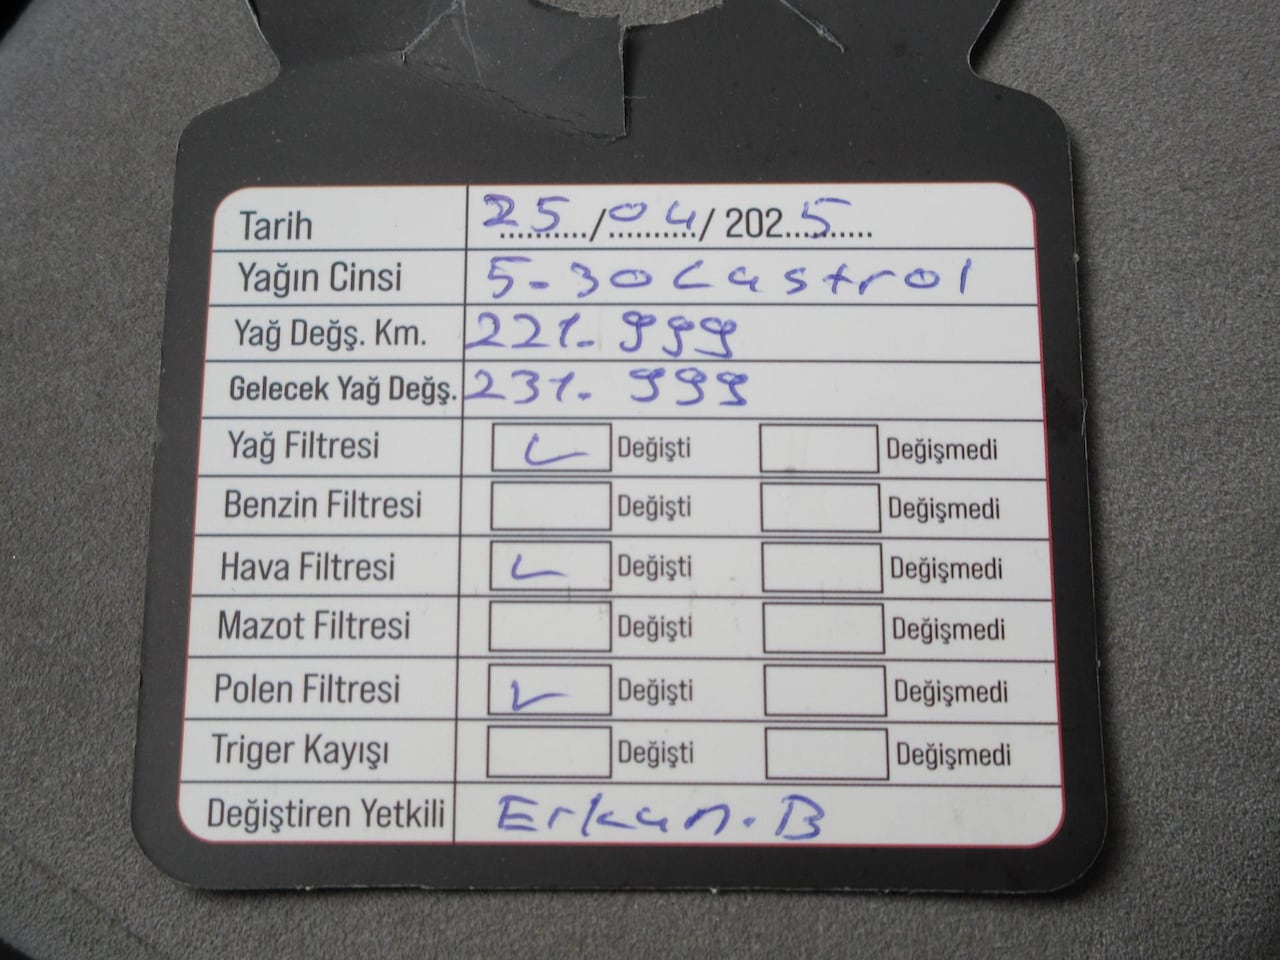 Tarih 25/04/2025
Yağın Cinsi 5-30 Castrol
Yağ Değş. Km. 221.999
Gelecek Yağ Değş. 231.999
Yağ Filtresi Değişti Değişmedi
Benzin Filtresi Değişti Değişmedi
Hava Filtresi Değişti Değişmedi
Mazot Filtresi Değişti Değişmedi
Polen Filtresi Değişti Değişmedi
Triger Kayışı Değişti Değişmedi
Değiştiren Yetkili Erkan.B